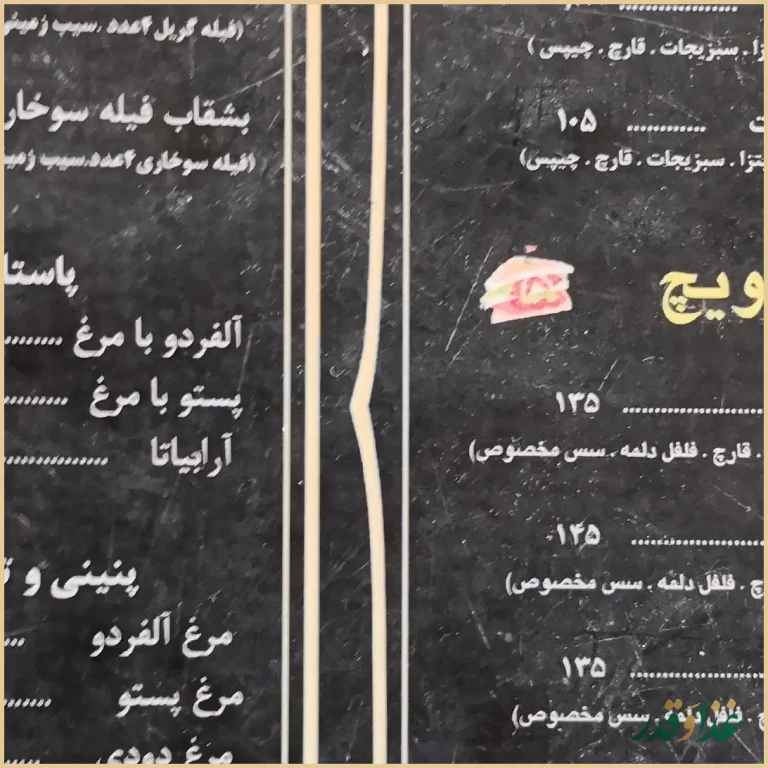 سبزیجات . قارچ . چیپس )
............ ۱۰۵
سبزیجات . قارچ . چیپس)
ویچ
.................... ۱۳۵
. قارچ . فلفل دلمه . سس مخصوص)
.................... ۱۴۵
. فلفل دلمه . سس مخصوص)
.................... ۱۳۵
. فلفل دلمه . سس مخصوص)
(فیله گریل ۴عدد .سیب زمینی
بشقاب فیله سوخار
(فیله سوخاری ۴عدد.سیب
پاستا
آلفردو با مرغ .........
پستو با مرغ ..........
آرابیاتا ...............
پنینی و
مرغ آلفردو ...
مرغ پستو .......
مرغ دودی .....
غذا و قدر